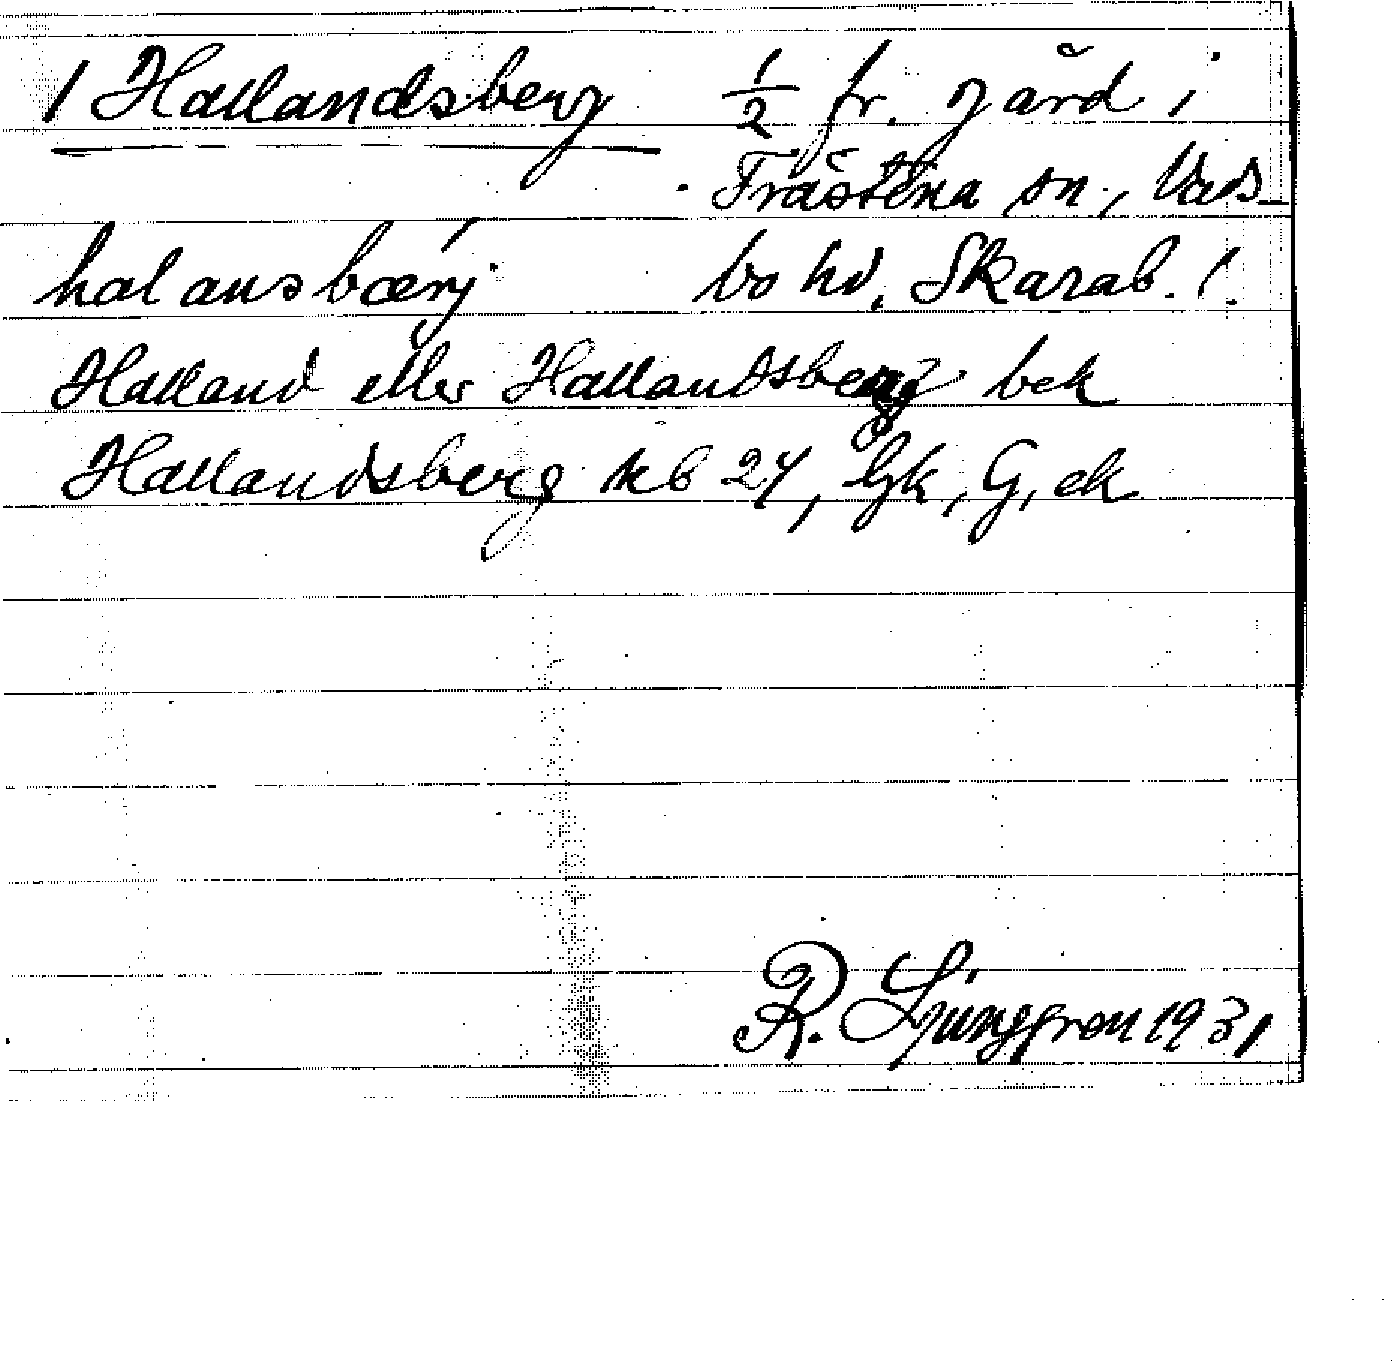 1 Hallandsberg ½ fr. gård i
Trästena sn., Vads-
halansbærj bo hd. Skarab. l.
Halland eller Hallandsberg bek
Hallandsberg kb 24, Gk, G, ek
R. Ljunggren 1931